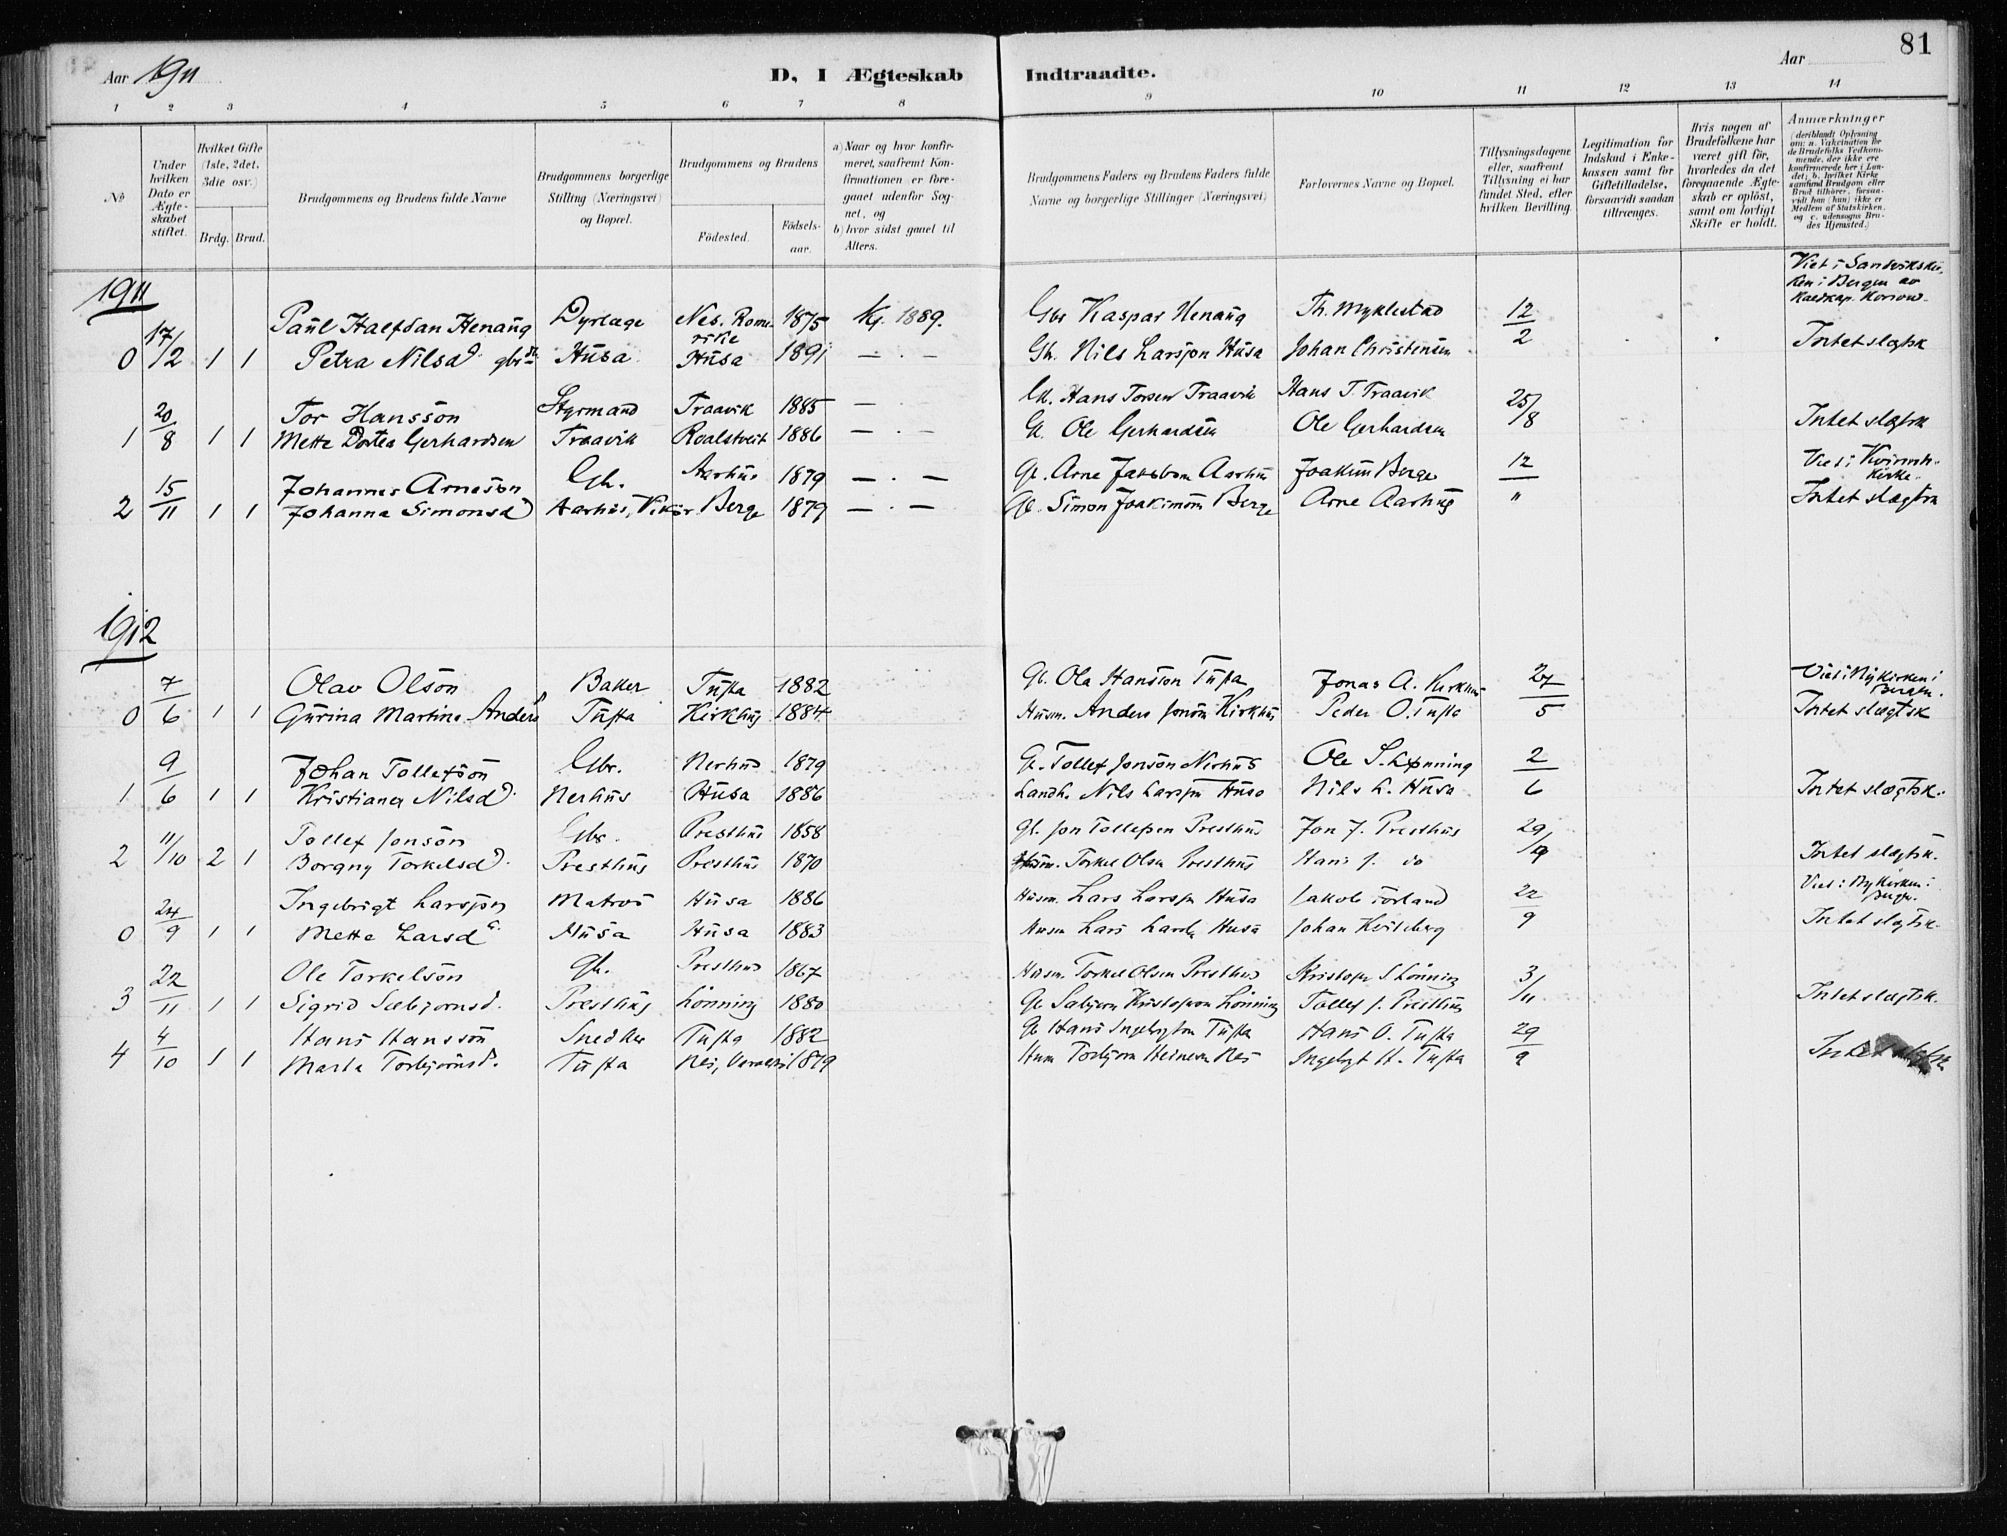 81
Aar 1911
D, I Ægteskab Indtraadte.
Aar
1 2 3 4 5 6 7 8 9 10 11 12 13 14
No
Under hvilken Dato er Ægteskabet stiftet.
Hvilket Gifte (1ste, 2det, 3die osv.)
Brdg. Brud.
Brudgommens og Brudens fulde Navne
Brudgommens borgerlige Stilling (Næringsvei) og Bopæl.
Brudgommens og Brudens
Födested.
Födselsaar.
a) Naar og hvor konfirmeret, saafremt Konfirmationen er foregaaet udenfor Sognet, og
b) hvor sidst gaaet til Alters.
Brudgommens Faders og Brudens Faders fulde Navne og borgerlige Stillinger (Næringsvei)
Forlovernes Navne og Bopæl.
Tillysningsdagene eller, saafremt Tillysning ei har fundet Sted, efter hvilken Bevilling.
Legitimation for Indskud i Enkekassen samt for Giftetilladelse, forsaavidt saadan tiltrænges.
Hvis nogen af Brudefolkene har været gift för, hvorledes da det foregaaende Ægteskab er oplöst, samt om lovligt Skifte er holdt.
Anmærkninger
(deriblandt Oplysning om: a. Vakcination for de Brudefolks Vedkommende, der ikke ere konfirmerede her i Landet; b. hvilket Kirkesamfund Brudgom eller Brud tilhörer, forsaavidt han (hun) ikke er Medlem af Statskirken, og c. udensogns Brudes Hjemsted.)
1911
Viet i Sandvikskirken i Bergen av
17/12 Paul Halfdan Henaug Dyrlæge Nes. Romerike 1875 Kf. 1889. Gbr Kaspar Henaug Th. Myklestad 12/2
0 1 1 Petra Nilsd. Husa Husa 1891 — . — Gb. Nils Larsson Husa Johan Christensen Intet slægtsk
20/8 Tor Hansson Styrmand Traavik 1885 — Hans Torsen Traavik Hans T. Traavik 25/8
1 1 1 Mette Dortea Gerhardsen Traavik Roalstveit 1886 — . — G. Ole Gerhardsen Ole Gerhardsen Intet slægtsk
15/11 Johannes Arneson Gb. Aarhus 1879 — . — Gb. Arne Jakobson Aarhus Joakim Berge 12/11 Viet i Kvinnh. Kirke.
2 1 1 Johanna Simonsd Aarhus, Vikör Berge 1879 — . — Gb. Simon Joakimson Berge Arne Aarhus Intet slægtsk
1912
7/6 Olav Olson Baker Tufta 1882 Gb. Ola Hansson Tufta Jonas A. Kirkhus 27/5 Viet i Nykirken i Bergen.
0 1 1 Gurina Martine Anders Tufta Kirkhus 1884 Husm. Anders Jonson Kirkhus Peder O. Tufta Intet slægtsk
9/6 Johan Tollefson Gbr. Nerhus 1879 G. Tollef Jonson Nerhus Ole S. Lønning 2/6
1 1 1 Kristianea Nilsd. Nerhus Husa 1886 Landh. Nils Larsson Husa Nils L. Husa Intet slægtsk.
11/10 Tollef Jonson Gbr. Presthus 1858 Gb. Jon Tollefsen Presthus Jon J. Presthus 29/9
2 2 1 Borgny Torkelsd. Presthus Presthus 1870 Husm. Torkel Olsen Presthus Hans J. do Intet slægtsk.
24/9 Ingebrigt Larsson Matros Husa 1886 Husm. Lars Larsson Husa Jakob 22/9 Viet i Nykirken i Bergen.
0 1 1 Mette Larsd. Husa Husa 1883 Husm Lars Husa Johan Intet slægtsk.
22/11 Ole Torkelson Gb. Presthus 1867 Husm. Torkel Olsen Presthus Kristofer S Lönning 3/11
3 1 1 Sigrid Sæbjornsd. Presthus Lönning 1880 Gb Sæbjorn Kristoferson Lönning Tollef J. Presthus Intet slægtsk.
4/10 Hans Hansson Snedker Tufta 1882 Gb Hans Ingebrigtson Tufta Hans O. Tufta 29/9
4 1 1 Marta Torbjörnsd. Tufta Nes, Varaldsö 1879 Husm Torbjorn Nes Ingebrigt H. Tufta Intet